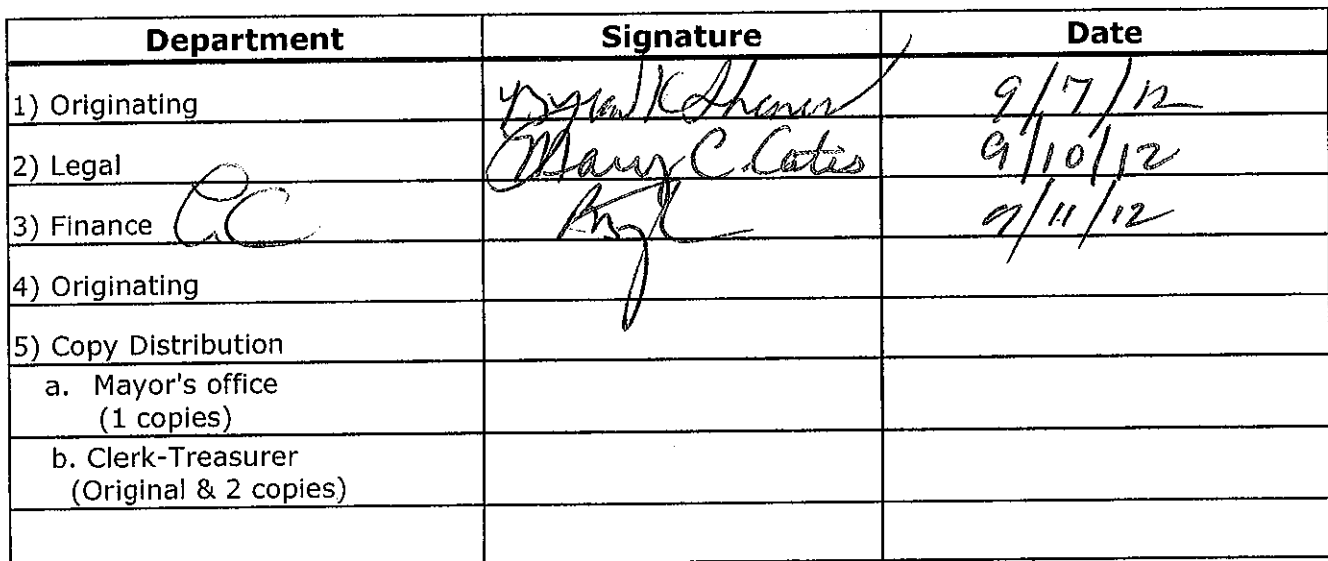 Department Signature Date
1) Originating 9/7/12
2) Legal Mary C. Cates 9/10/12
3) Finance CC 9/11/12
4) Originating
5) Copy Distribution
a. Mayor's office
(1 copies)
b. Clerk-Treasurer
(Original & 2 copies)